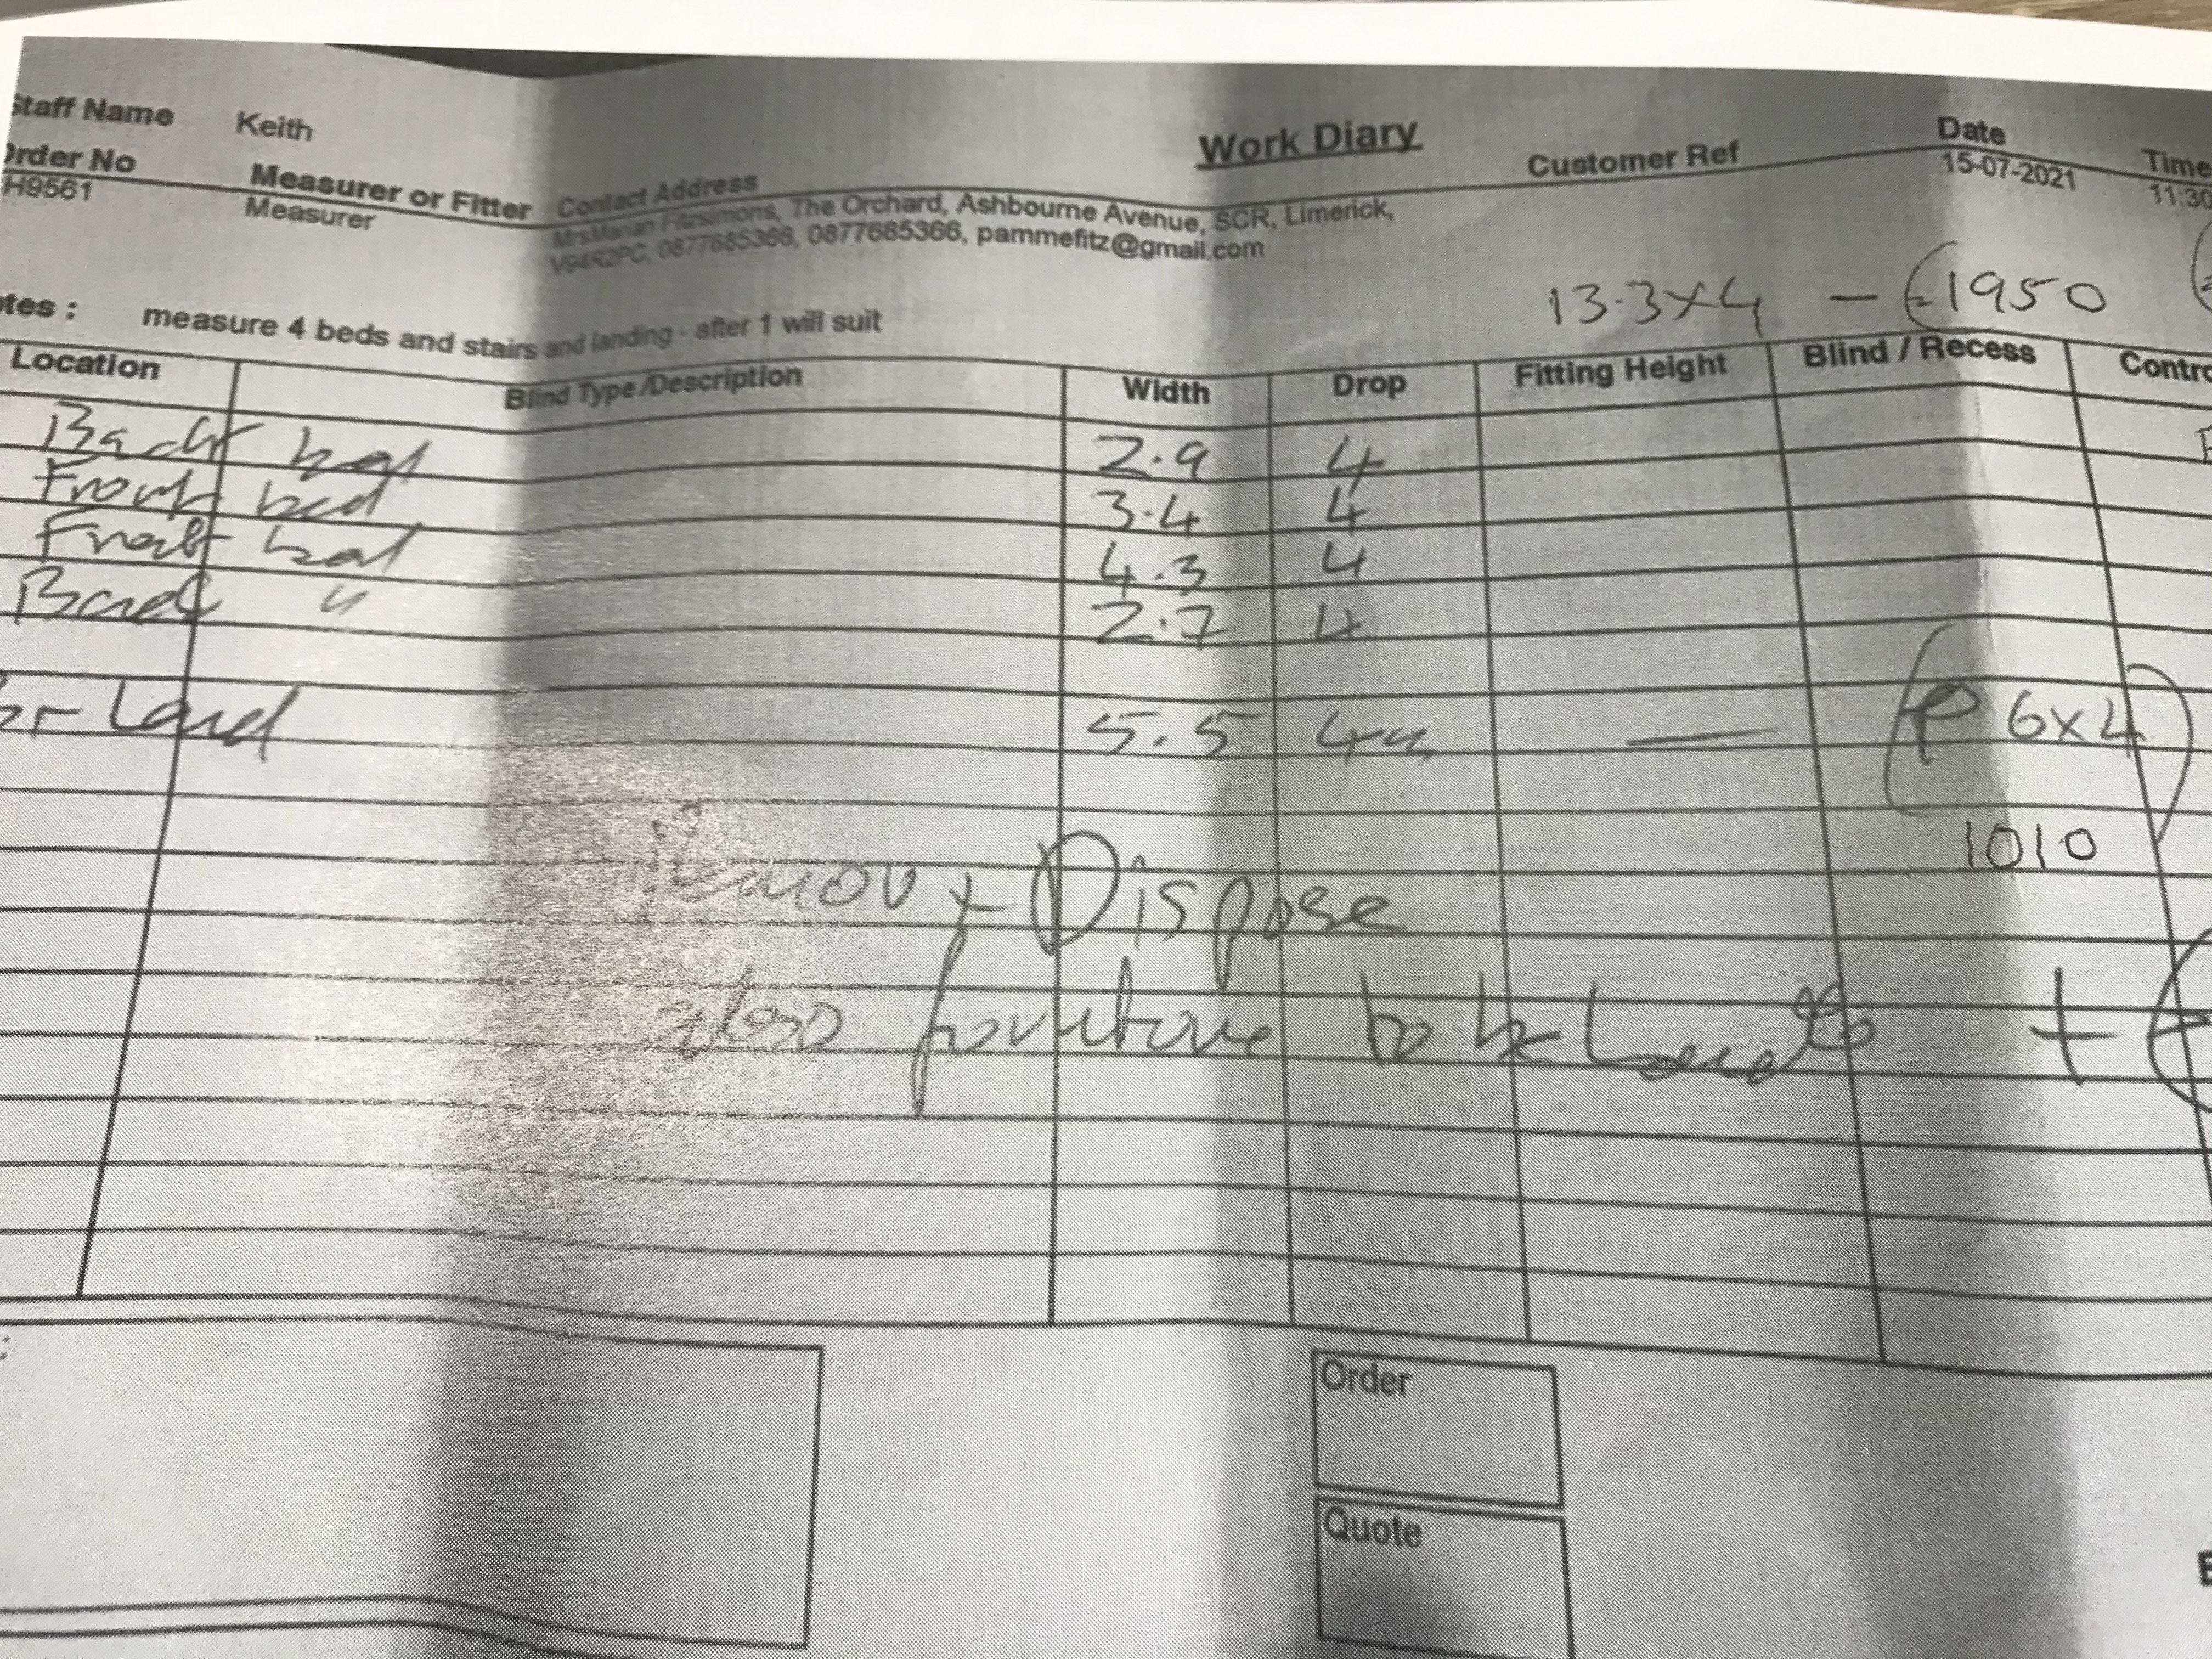 Staff Name Keith
Work Diary
Date
Time
Order No Measurer or Fitter Contact Address Customer Ref
15-07-2021 11:30
H9561 Measurer Mrs Marian Fitzsimons, The Orchard, Ashbourne Avenue, SCR, Limerick,
0877685366, 0877685366, pammefitz@gmail.com
13.3x4 - €1950
tes : measure 4 beds and stairs and landing - after 1 will suit
Location Blind Type /Description Width Drop Fitting Height Blind / Recess Contro
Back bed 2.9 4
Front bed 3.4 4
Front bed 4.3 4
Back " 2.7 4
Land 5.5 4 — 6x4
1010
Remov + Dispose
also furniture to be +
Order
Quote